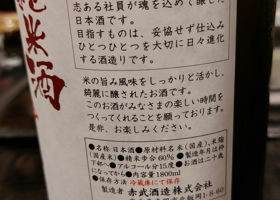 純米酒
志ある社員が魂を込めて醸した
日本酒です。
目指すものは、妥協せず仕込み
ひとつひとつを大切に日々進化
する酒造りです。
米の旨み風味をしっかりと活かし、
綺麗に醸されたお酒です。
このお酒がみなさまの楽しい時間を
つくってくれることを願っております。
是非、お楽しみください。
●名称 日本酒●原材料名 米(国産)、米麹
(国産米)●精米歩合 60% ●製造年月は枠
下部へ●アルコール分15度●お酒は二十歳
になってから●内容量1800ml
●保存方法 冷蔵庫にて保存
製造者 赤武酒造株式会社
市北飯岡1-8-60